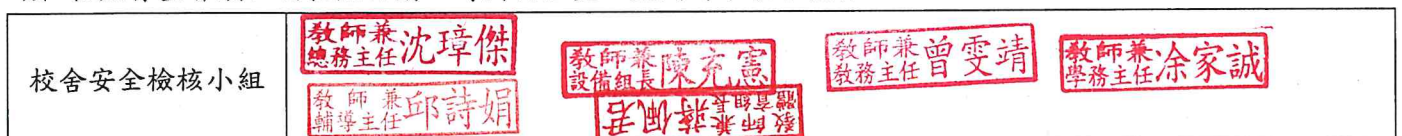 校舍安全檢核小組
教師兼總務主任沈璋傑
教師兼設備組長陳充憲
教師兼教務主任曾雯靖
教師兼學務主任涂家誠
教師兼輔導主任邱詩娟
教師兼體育組長蔣佩君